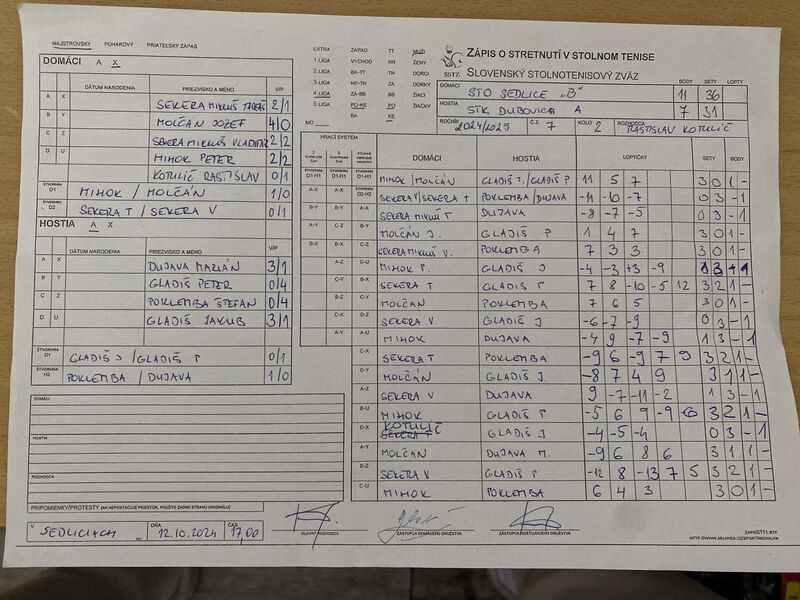 MAJSTROVSKÝ POHÁROVÝ PRIATEĽSKÝ ZÁPAS
DOMÁCI A X
DÁTUM NARODENIA PRIEZVISKO A MENO V/P
A X SEKERA MIKULÁŠ 2/1
B Y MOLČÁN JOZEF 4/0
C Z SEKERA MIKULÁŠ 2/2
D U MIHOK PETER 2/2
KOTULIČ RASTISLAV 0/1
ŠTVORHRA D1 MIHOK / MOLČÁN 1/0
ŠTVORHRA D2 SEKERA T / SEKERA V 0/1
HOSTIA A X
DÁTUM NARODENIA PRIEZVISKO A MENO V/P
A X DUJAVA MARIÁN 3/1
B Y GLADIŠ PETER 0/4
C Z POKLEMBA ŠTEFAN 0/4
D U GLADIŠ JAKUB 3/1
ŠTVORHRA D1 GLADIŠ J / GLADIŠ P 0/1
ŠTVORHRA H2 POKLEMBA / DUJAVA 1/0
DOMÁCI
HOSTIA
ROZHODCA
PRIPOMIENKY/PROTESTY (AK NEPOSTAČUJE PRIESTOR, POUŽITE ZADNÚ STRANU ORIGINÁLU)
V SEDLICIACH DŇA 12.10.2024 ČAS 17,00
HLAVNÝ ROZHODCA
ZÁSTUPCA DOMÁCEHO DRUŽSTVA
ZÁSTUPCA HOSŤUJÚCEHO DRUŽSTVA
EXTRA ZÁPAD TT MUŽI
1.LIGA VÝCHOD NR ŽENY
2.LIGA BA-TT TN DORCI
3.LIGA NR-TN ZA DORKY
4.LIGA ZA-BB BB ŽIACI
5.LIGA PO-KE PO ŽIAČKY
MO BA KE
SSTZ
ZÁPIS O STRETNUTÍ V STOLNOM TENISE
SLOVENSKÝ STOLNOTENISOVÝ ZVÄZ
BODY SETY LOPTY
DOMÁCI STO SEDLICE "B" 11 36
HOSTIA STK DUBOVICA A 7 31
ROČNÍK 2024/2025 Č.Z. 7 KOLO 2 ROZHODCA RASTISLAV KOTULIČ
HRACÍ SYSTÉM
DOMÁCI HOSTIA LOPTIČKY SETY BODY
D1-H1 D1-H1 D1-H1 MIHOK / MOLČÁN GLADIŠ J. / GLADIŠ P 11 5 7 3 0 1 -
A-X A-X D2-H2 SEKERA V / SEKERA T POKLEMBA / DUJAVA -11 -10 -7 0 3 - 1
B-Y B-Y A-X SEKERA MIKULÁŠ T. DUJAVA -8 -7 -5 0 3 - 1
A-Y C-Z B-Y MOLČÁN J. GLADIŠ P 1 4 7 3 0 1 -
B-X B-X C-Z SEKERA MIKULÁŠ V. POKLEMBA 7 3 3 3 0 1 -
A-Z D-U MIHOK P. GLADIŠ J -4 -3 +3 -9 1 3 - 1
C-Y B-X SEKERA T GLADIŠ P 7 8 -10 -5 12 3 2 1 -
B-Z C-Y MOLČAN POKLEMBA 7 6 5 3 0 1 -
C-X D-Z SEKERA V GLADIŠ J -6 -7 -9 0 3 - 1
A-Y A-U MIHOK DUJAVA -4 9 -7 -9 1 3 - 1
C-X SEKERA T POKLEMBA -9 6 -9 7 9 3 2 1 -
D-Y MOLČÁN GLADIŠ J. -8 7 4 9 3 1 1 -
A-Z SEKERA V DUJAVA 9 -7 -11 -2 1 3 - 1
B-U MIHOK GLADIŠ P -5 6 9 -9 6 3 2 1 -
D-X KOTULIČ GLADIŠ J -4 -5 -4 0 3 - 1
A-Y MOLČAN DUJAVA M. -9 6 8 6 3 1 1 -
B-Z SEKERA V GLADIŠ P -12 8 -13 7 5 3 2 1 -
C-U MIHOK POKLEMBA 6 4 3 3 0 1 -
ZAPISST11.RTF